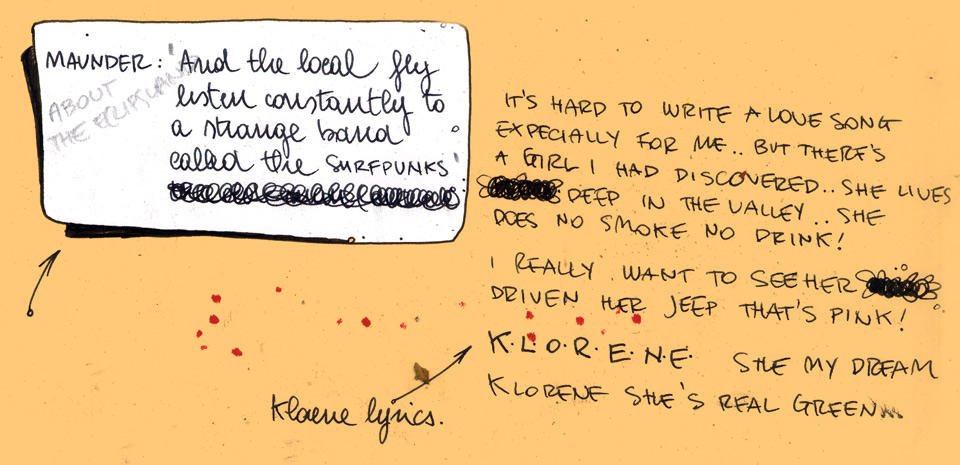 MAUNDER: 'And the local fly
listen constantly to
a strange band
called the SURFPUNKS'
ABOUT
THE
IT'S HARD TO WRITE A LOVE SONG
EXPECIALLY FOR ME.. BUT THERE'S
A GIRL I HAD DISCOVERED.. SHE LIVES
DEEP IN THE VALLEY.. SHE
DOES NO SMOKE NO DRINK!
I REALLY WANT TO SEE HER
DRIVEN HER JEEP THAT'S PINK!
K.L.O.R.E.N.E. SHE MY DREAM
KLORENE SHE'S REAL GREEN...
Klorene lyrics.